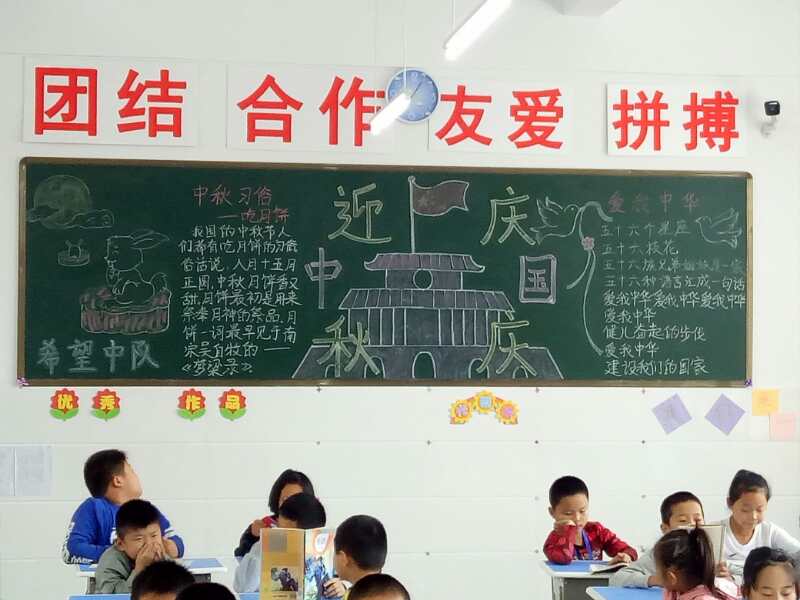 团结 合作 友爱 拼搏
中秋习俗
——吃月饼
我国的中秋节人
们都有吃月饼的习俗
俗话说,八月十五月
正圆,中秋月饼香又
甜,月饼最初是用来
祭奉月神的祭品,月
饼一词最早见于南
宋吴自牧的——
《梦粱录》
希望中队
迎 庆
中 国
秋 庆
爱我中华
五十六个星座
五十六枝花
五十六族兄弟姐妹是一家
五十六种语言汇成一句话
爱我中华爱我中华爱我中华
爱我中华
健儿奋起的步伐
爱我中华
建设我们的国家
优秀作品